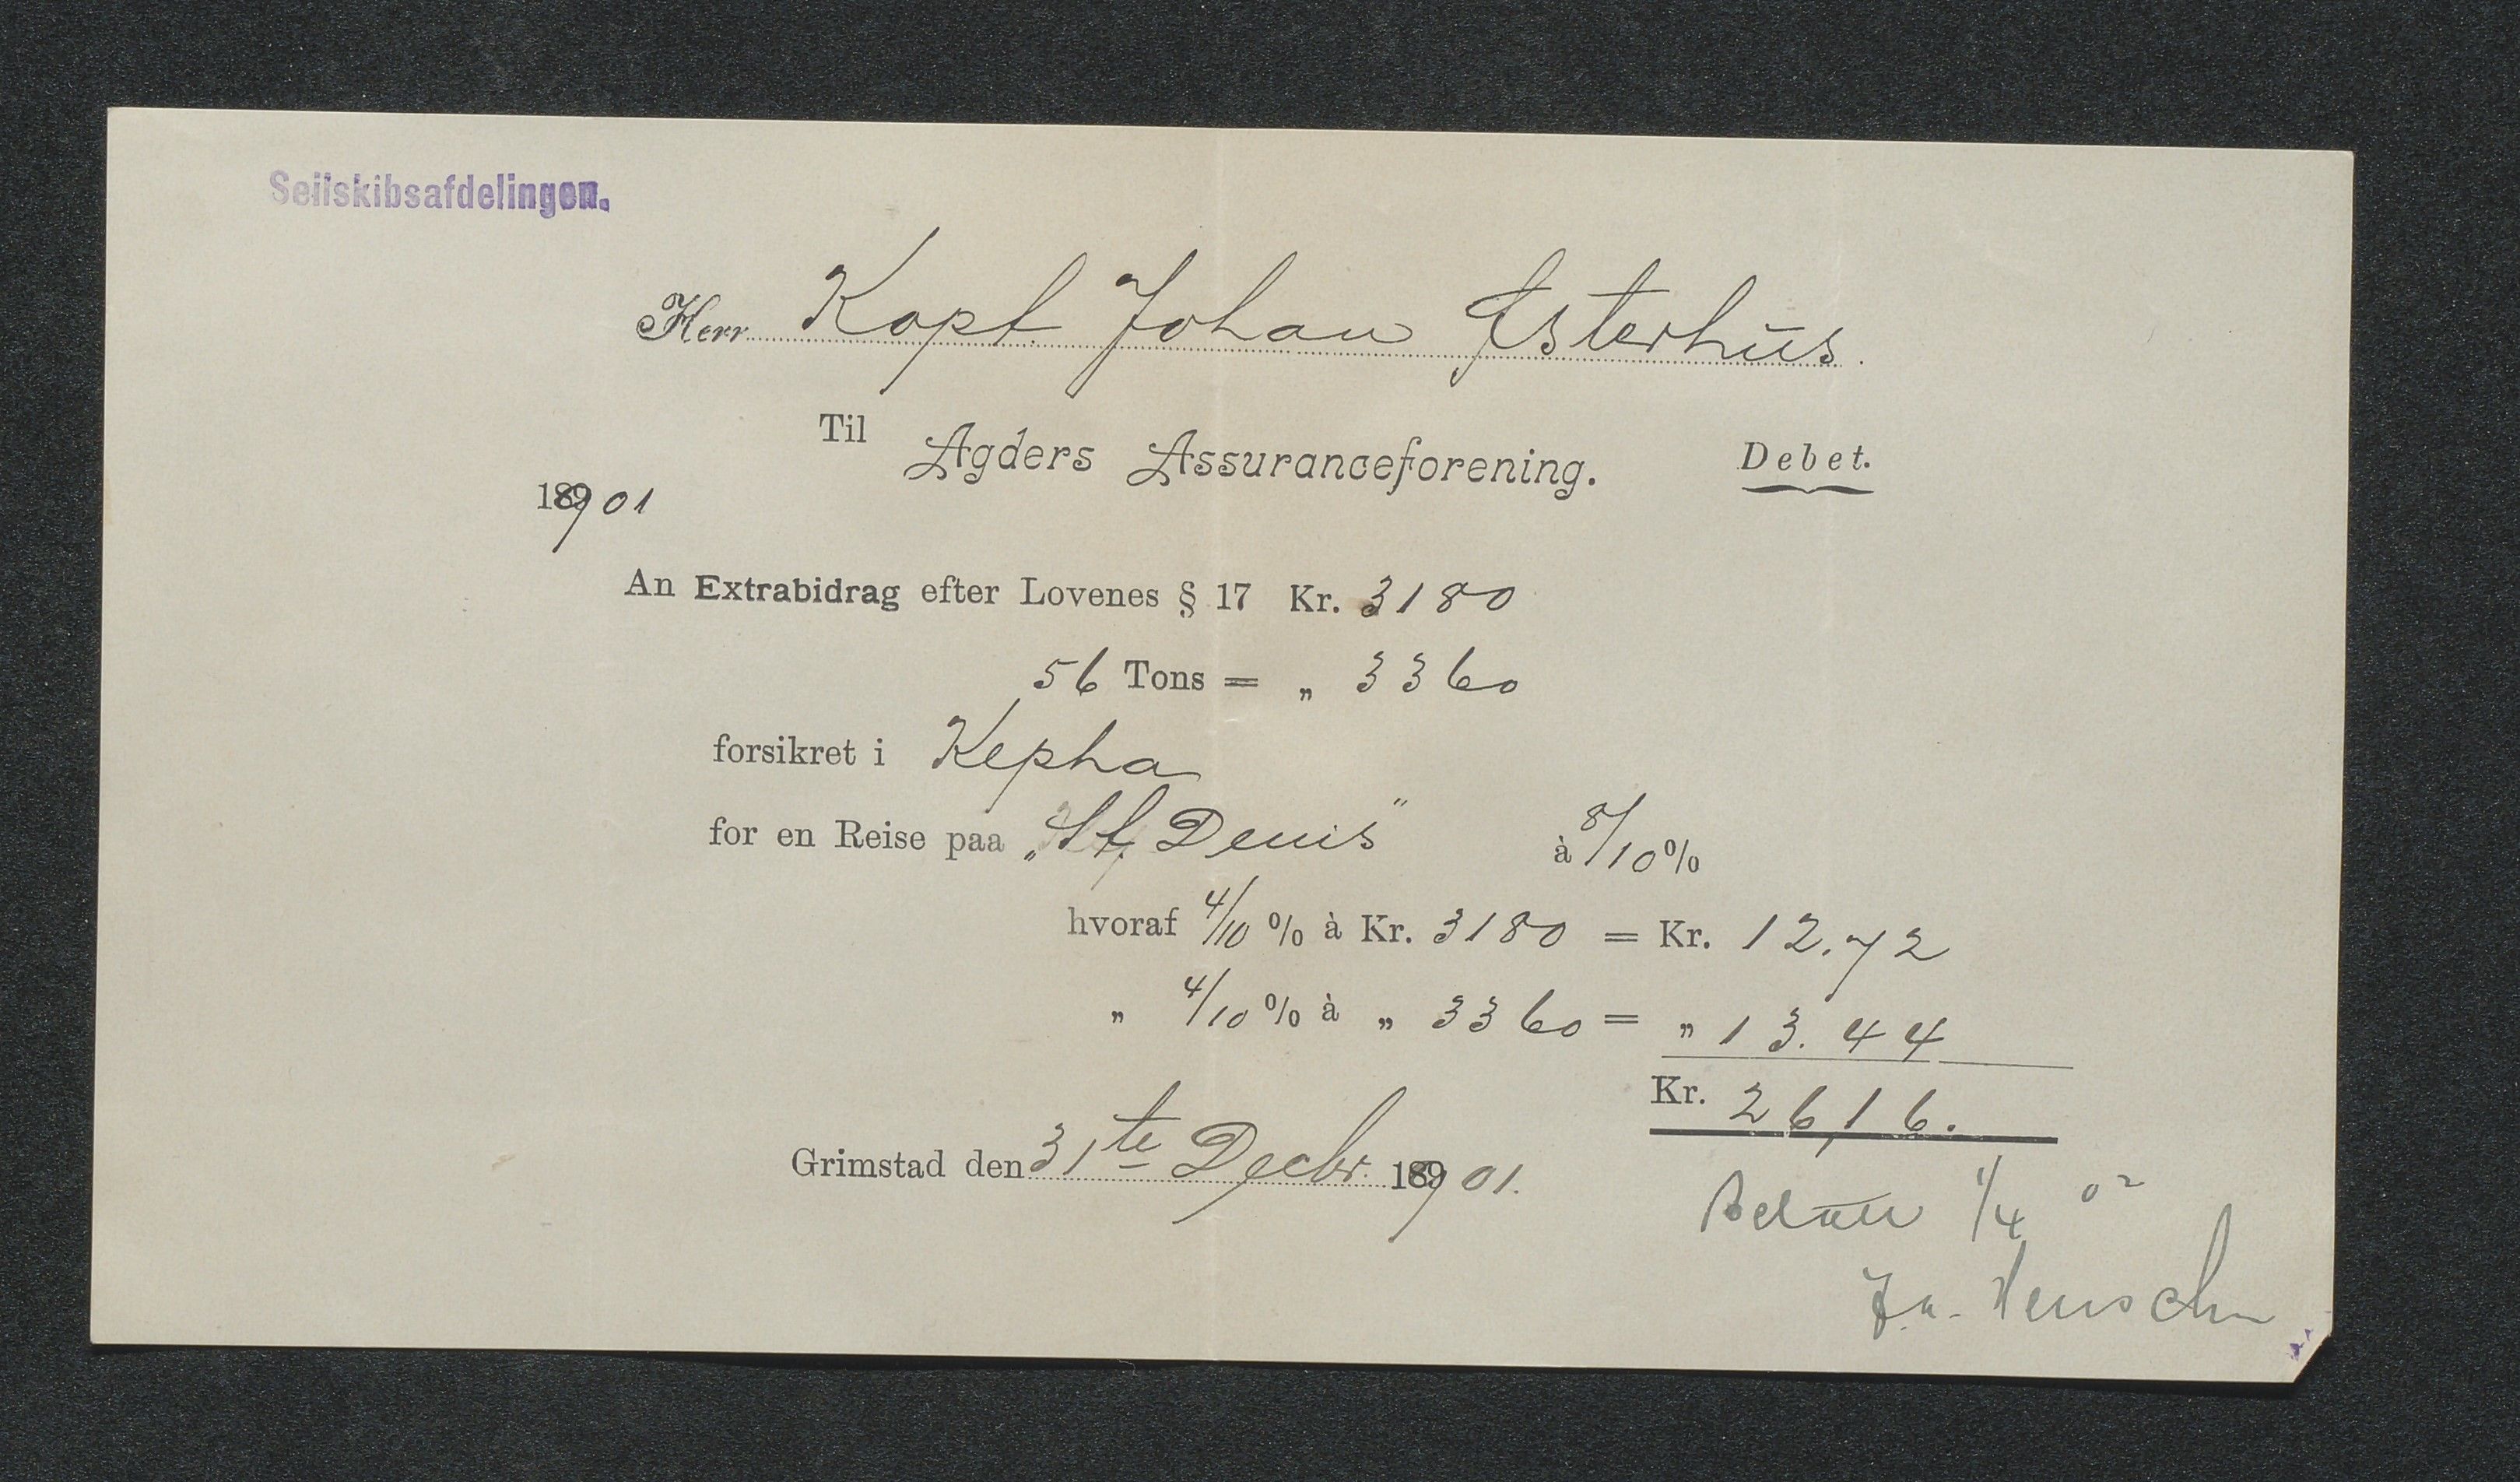 Seilskibsafdelingen.
Herr Kapt. Johan Østerhus.
Til Agders Assuranceforening. Debet.
1901
An Extrabidrag efter Lovenes § 17 Kr. 3180
56 Tons = „ 3360
forsikret i Kepha
for en Reise paa „St. Denis" à 8/10 %
hvoraf 4/10 % à Kr. 3180 = Kr. 12.72
„ 4/10 % à „ 3360 = „ 13.44
Kr. 26,16.
Grimstad den 31te Decbr. 1901.
1/4 02